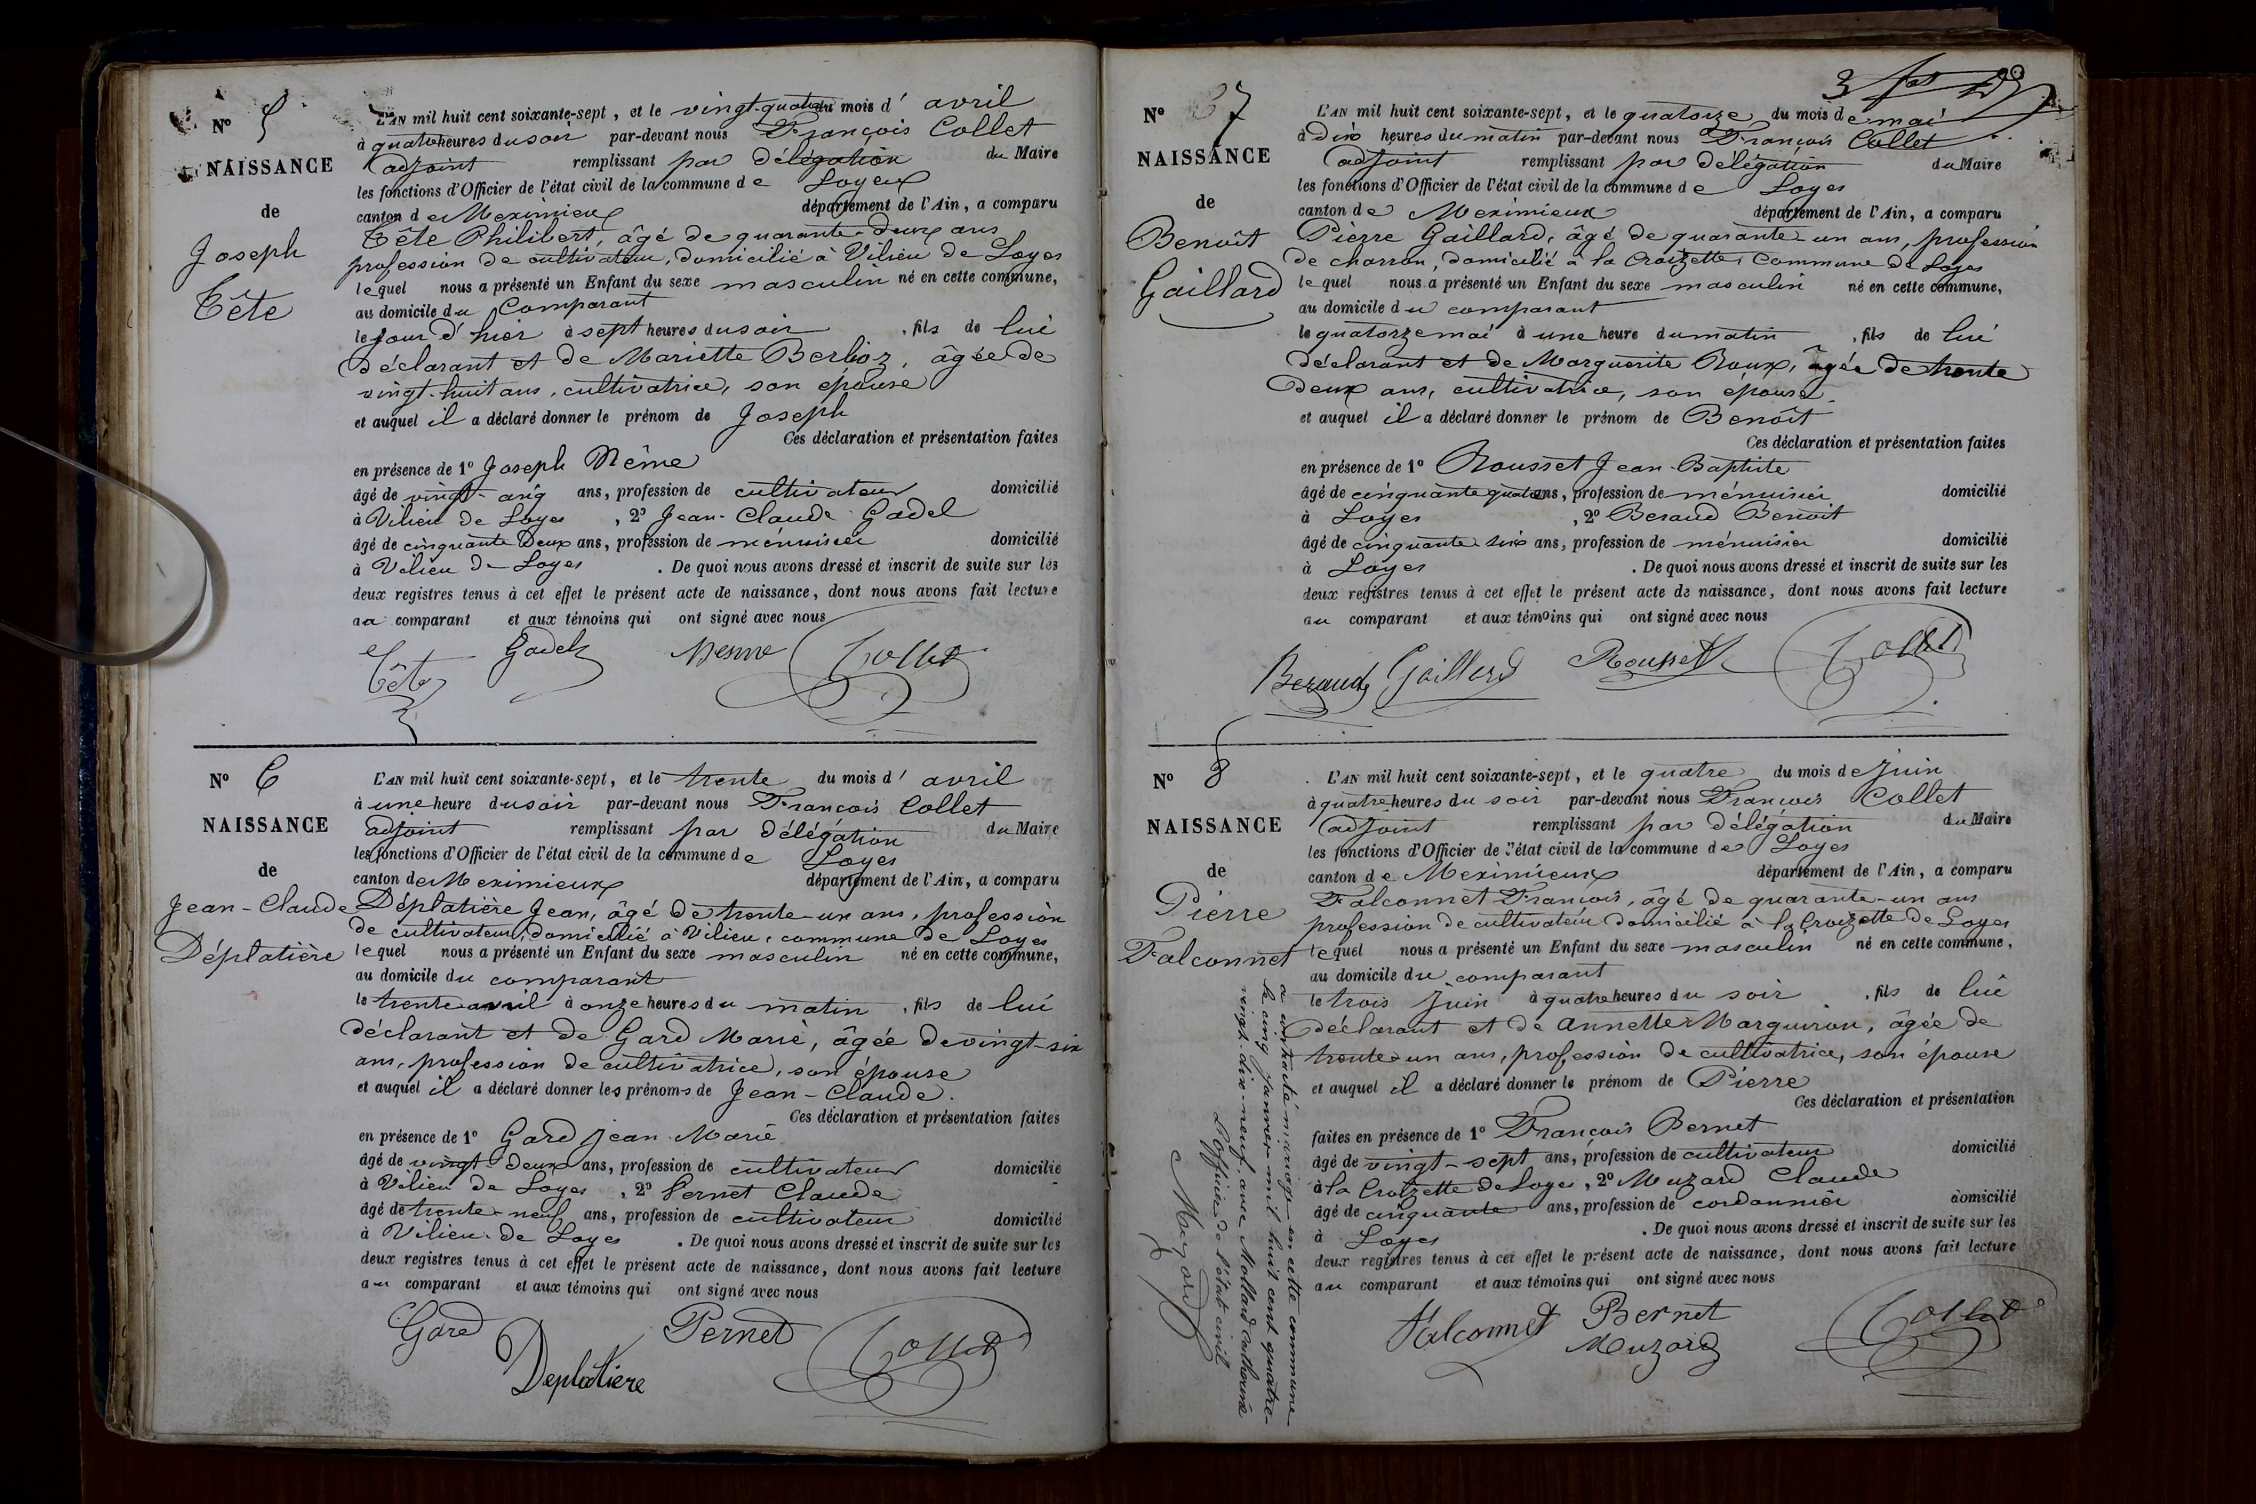 Nº 5
NAISSANCE
de
Joseph
Tête
L'AN mil huit cent soixante-sept, et le vingt-quatre du mois d' avril
à quatre heures du soir par-devant nous François Collet
adjoint remplissant par délégation du Maire
les fonctions d'Officier de l'état civil de la commune de Loyes
canton de Meximieux département de l'Ain, a comparu
Tête Philibert, âgé de quarante-deux ans
profession de cultivateur, domicilié à Vilieu de Loyes
lequel nous a présenté un Enfant du sexe masculin né en cette commune,
au domicile du Comparant
le jour d'hier à sept heures du soir, fils de lui
déclarant et de Mariette Berlioz, âgée de
vingt-huit ans, cultivatrice, son épouse
et auquel il a déclaré donner le prénom de Joseph
Ces déclaration et présentation faites
en présence de 1º Joseph Même
âgé de vingt-cinq ans, profession de cultivateur domicilié
à Vilieu de Loyes, 2º Jean-Claude Godel
âgé de cinquante Deux ans, profession de ménuisier domicilié
à Vilieu de Loyes. De quoi nous avons dressé et inscrit de suite sur les
deux registres tenus à cet effet le présent acte de naissance, dont nous avons fait lecture
au comparant et aux témoins qui ont signé avec nous
Tête Godel Mesme Collet
Nº 6
NAISSANCE
de
Jean-Claude
Déplatière
L'AN mil huit cent soixante-sept, et le trente du mois d' avril
à une heure du soir par-devant nous François Collet
adjoint remplissant par délégation du Maire
les fonctions d'Officier de l'état civil de la commune de Loyes
canton de Meximieux département de l'Ain, a comparu
Déplatière Jean, âgé de trente-un ans, profession
de cultivateur, domicilié à Vilieu, commune de Loyes
lequel nous a présenté un Enfant du sexe masculin né en cette commune,
au domicile du comparant
le trente avril à onze heures du matin, fils de lui
déclarant et de Gard Marie, âgée de vingt-six
ans, profession de cultivatrice, son épouse
et auquel il a déclaré donner les prénoms de Jean-Claude.
Ces déclaration et présentation faites
en présence de 1º Gard Jean Marie
âgé de vingt-deux ans, profession de cultivateur domicilié
à Vilieu de Loyes, 2º Pernet Claude
âgé de trente-neuf ans, profession de cultivateur domicilié
à Vilieu de Loyes. De quoi nous avons dressé et inscrit de suite sur les
deux registres tenus à cet effet le présent acte de naissance, dont nous avons fait lecture
au comparant et aux témoins qui ont signé avec nous
Gard Pernet Collet
Deplatiere
Nº 7
NAISSANCE
de
Benoît
Gaillard
L'AN mil huit cent soixante-sept, et le quatorze du mois de mai
à Dix heures du matin par-devant nous François Collet
adjoint remplissant par délégation du Maire
les fonctions d'Officier de l'état civil de la commune de Loyes
canton de Meximieux département de l'Ain, a comparu
Pierre Gaillard, âgé de quarante-un ans, profession
de charron, domicilié à la Croizette, Commune de Loyes
lequel nous a présenté un Enfant du sexe masculin né en cette commune,
au domicile du comparant
le quatorze mai à une heure du matin, fils de lui
déclarant et de Marguerite Roux, âgée de trente
deux ans, cultivatrice, son épouse
et auquel il a déclaré donner le prénom de Benoît
Ces déclaration et présentation faites
en présence de 1º Rousset Jean-Baptiste
âgé de cinquante quatre ans, profession de ménuisier domicilié
à Loyes, 2º Beraud Benoit
âgé de cinquante six ans, profession de ménuisier domicilié
à Loyes. De quoi nous avons dressé et inscrit de suite sur les
deux registres tenus à cet effet le présent acte de naissance, dont nous avons fait lecture
au comparant et aux témoins qui ont signé avec nous
Beraud Gaillard Rousset Collet
Nº 8
NAISSANCE
de
Pierre
Falconnet
L'AN mil huit cent soixante-sept, et le quatre du mois de juin
à quatre heures du soir par-devant nous François Collet
adjoint remplissant par délégation du Maire
les fonctions d'Officier de l'état civil de la commune de Loyes
canton de Meximieux département de l'Ain, a comparu
Falconnet François, âgé de quarante-un ans
profession de cultivateur domicilié à la Croizette de Loyes
lequel nous a présenté un Enfant du sexe masculin né en cette commune,
au domicile du comparant
le trois juin à quatre heures du soir, fils de lui
déclarant et de Annette Marguiron, âgée de
trente-un ans, profession de cultivatrice, son épouse
et auquel il a déclaré donner le prénom de Pierre
Ces déclaration et présentation
faites en présence de 1º François Bernet
âgé de vingt-sept ans, profession de cultivateur domicilié
à la Croizette de Loyes, 2º Muzard Claude
âgé de cinquante ans, profession de cordonnier domicilié
à Loyes. De quoi nous avons dressé et inscrit de suite sur les
deux registres tenus à cet effet le présent acte de naissance, dont nous avons fait lecture
au comparant et aux témoins qui ont signé avec nous
Falconnet Bernet Collet
Muzard
a contracté mariage en cette commune
le cinq janvier mil huit cent quatre-
vingt-dix-neuf avec Mollard Catherine
L'officier de l'état civil